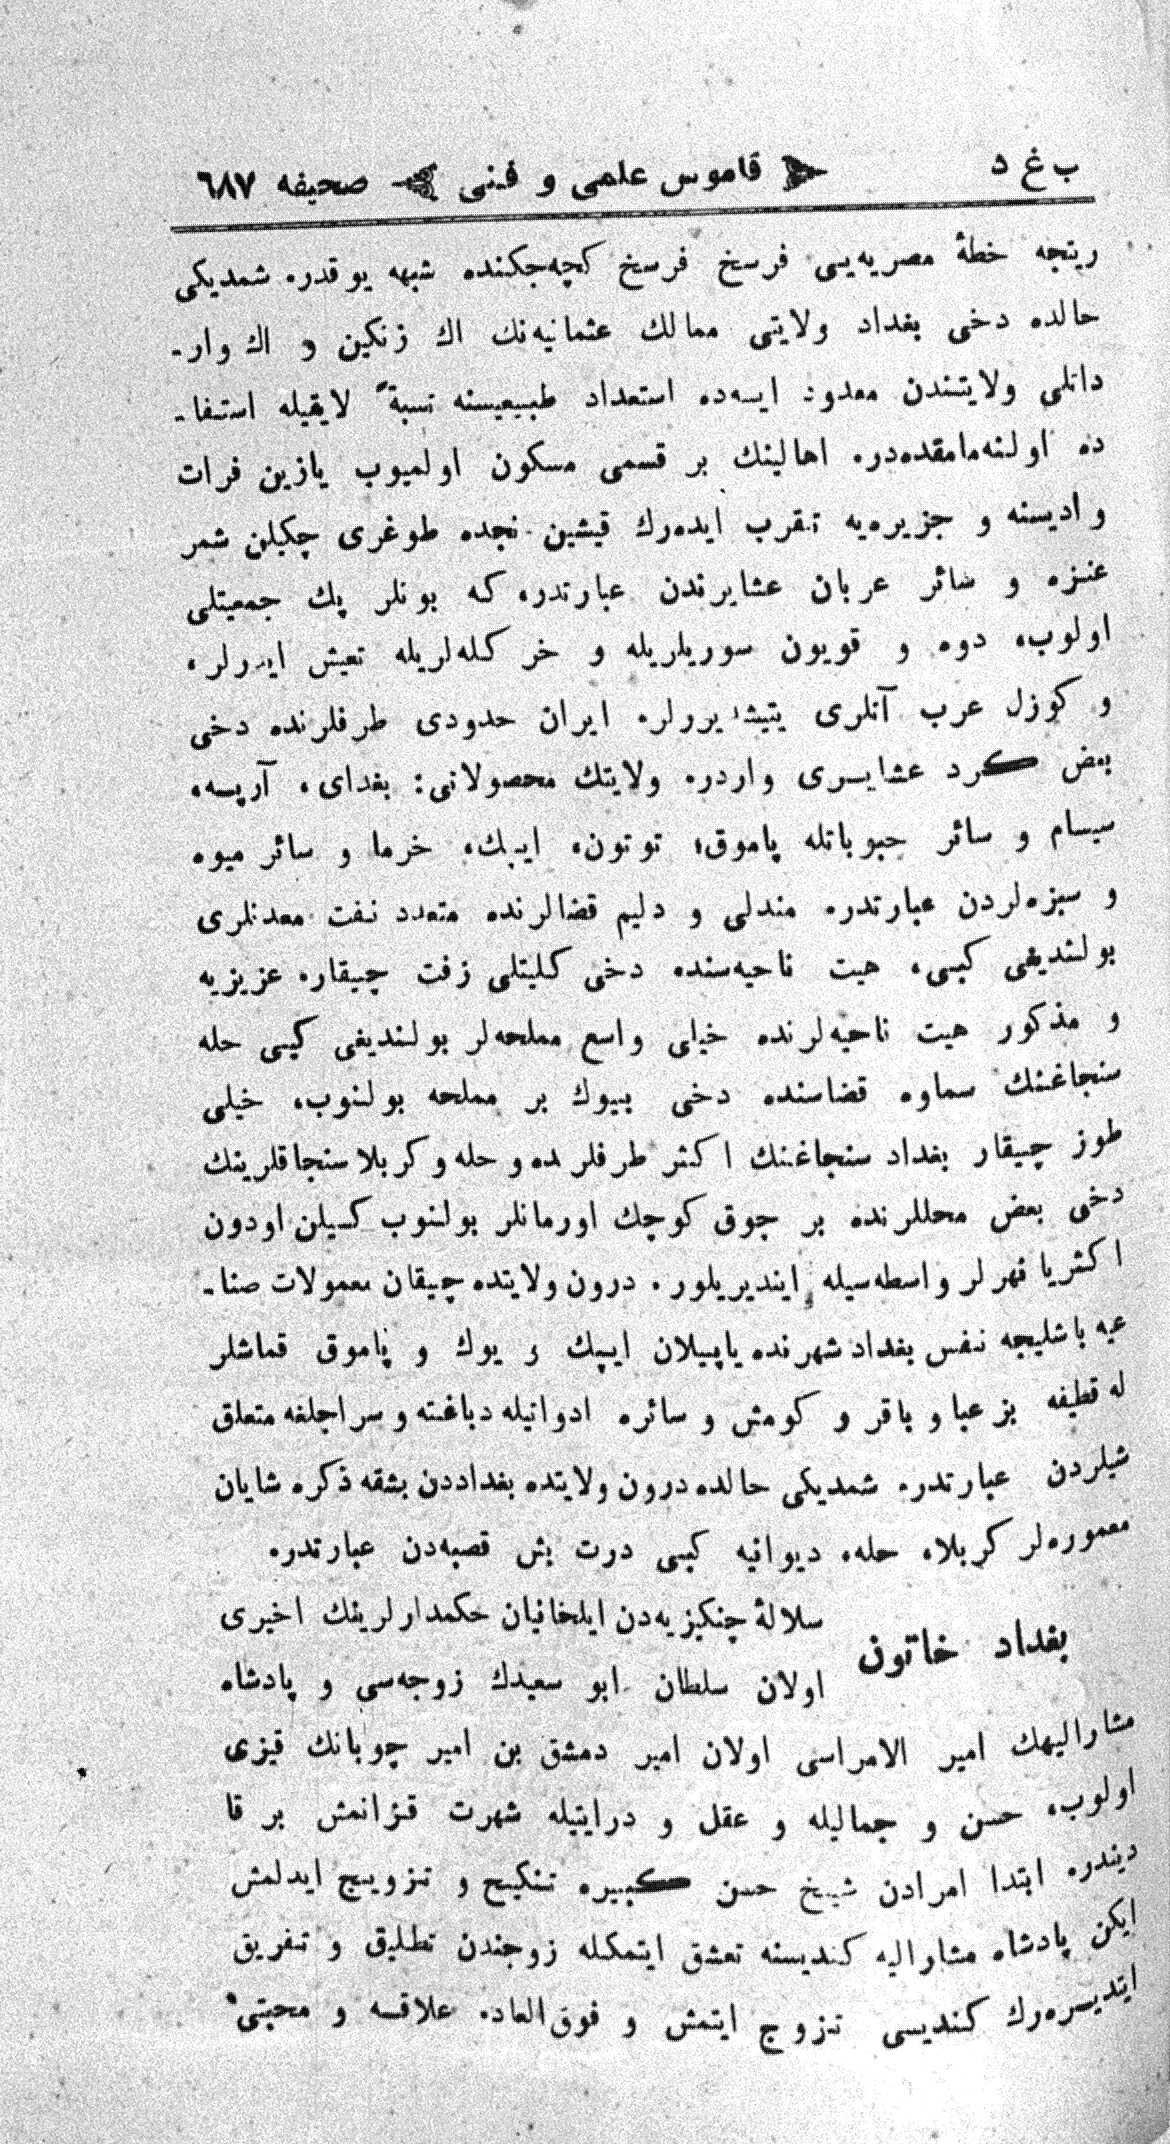 ب غ د قاموس علمی و فنی صحیفه ٦٨٧
ریتجه خطهٔ مصریه‌یی فرسخ فرسخ کچه‌جکنده شبهه یوقدر. شمدیکی
حالده دخی بغداد ولایتی ممالك عثمانیه‌نك اك زنکین و اك وار-
داتلی ولایتندن معدود ایسه‌ده استعداد طبیعیسنه نسبةً لایقیله استفا-
ده اولنه‌مامقده‌در. اهالینك بر قسمی مسکون اولمیوب یازین فرات
وادیسنه و جزیره‌یه تقرب ایده‌رك قیشین نجده طوغری چکیلن شمر
عنزه و سائر عربان عشایرندن عبارتدر، که بونلر پك جمعیتلی
اولوب، دوه و قویون سوریلریله و خرکله‌لریله تعیش ایدرلر،
و کوزل عرب آتلری یتیشدیررلر. ایران حدودی طرفلرنده دخی
بعض کرد عشایری واردر. ولایتك محصولاتی: بغدای، آرپه،
سیسام و سائر حبوباتله پاموق؛ توتون، ایپك، خرما و سائر میوه
و سبزه‌لردن عبارتدر. مندلی و دلیم قضالرنده متعدد نفت معدنلری
بولندیغی کبی، هیت ناحیه‌سنده دخی کلیتلی زفت چیقار. عزیزیه
و مذکور هیت ناحیه‌لرنده خیلی واسع مملحه‌لر بولندیغی کبی حله
سنجاغنك سماوه قضاسنده دخی بیوك بر مملحه بولنوب، خیلی
طوز چیقار بغداد سنجاغنك اکثر طرفلرنده و حله و کربلا سنجاقلرینك
دخی بعض محللرنده بر چوق کوچك اورمانلر بولنوب کسیلن اودون
اکثریا نهرلر واسطه‌سیله ایندیریلور. درون ولایتده چیقان معمولات صنا-
عیه باشلیجه نفس بغداد شهرنده یاپیلان ایپك و یوك و پاموق قماشلر
له قطیفه بز عبا و باقر و کومش و سائره ادواتیله دباغته و سراجلغه متعلق
شیلردن عبارتدر. شمدیکی حالده درون ولایتده بغداددن بشقه ذکره شایان
معموره‌لر کربلا، حله، دیوانیه کبی درت بش قصبه‌دن عبارتدر.
بغداد خاتون سلالهٔ چنکیزیه‌دن ایلخانیان حکمدارلرینك اخیری
اولان سلطان ابو سعیدك زوجه‌سی و پادشاه
مشارالیهك امیر الامراسی اولان امیر دمشق بن امیر چوبانك قیزی
اولوب، حسن و جمالیله و عقل و درایتیله شهرت قزانمش بر قا
دیندر. ابتدا امرادن شیخ حسن کبیره تنکیح و تزویج ایدلمش
ایکن پادشاه مشارالیه کندیسنه تعشق ایتمکله زوجندن تطلیق و تفریق
ایتدیره‌رك کندیسی تزوج ایتمش و فوق‌العاده علاقه و محبتی